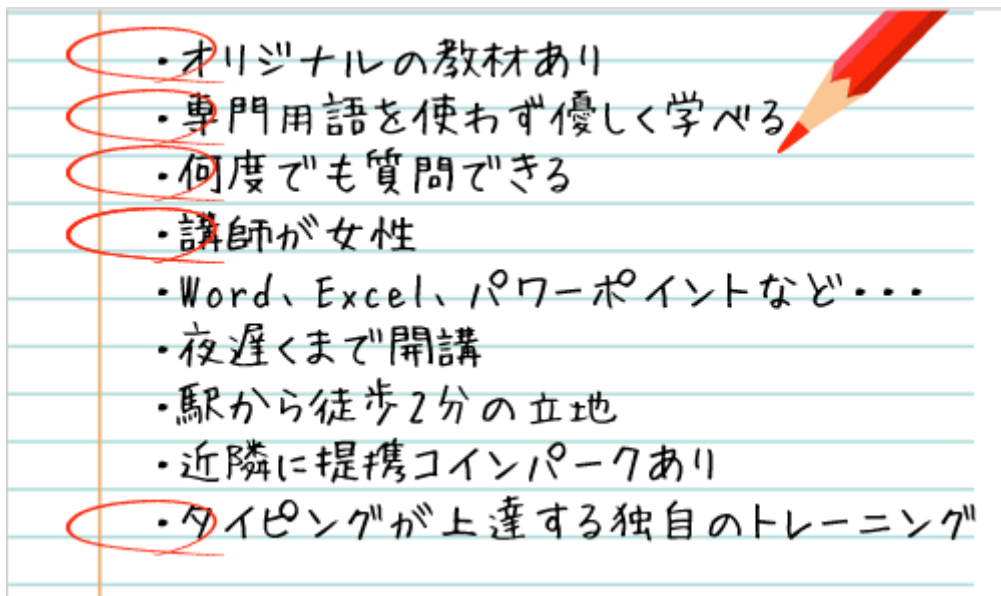 ・オリジナルの教材あり
・専門用語を使わず優しく学べる
・何度でも質問できる
・講師が女性
・Word、Excel、パワーポイントなど・・・
・夜遅くまで開講
・駅から徒歩2分の立地
・近隣に提携コインパークあり
・タイピングが上達する独自のトレーニング